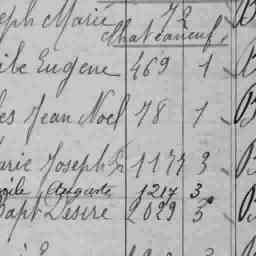 eph Marie 72
Chateauneuf,
ile Eugène 469 1 B
es Jean Noël 78 1 B
arie Joseph 1177 3 B
oile Auguste 1217 3
Bapt Désiré 2029 5 B